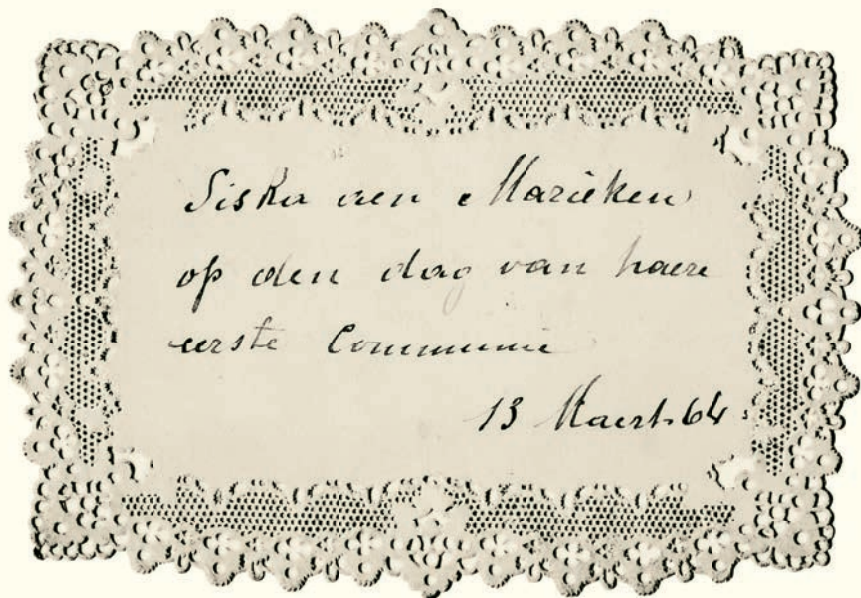 Siska aen Marieken
op den dag van haere
eerste Communie
13 Maert 64